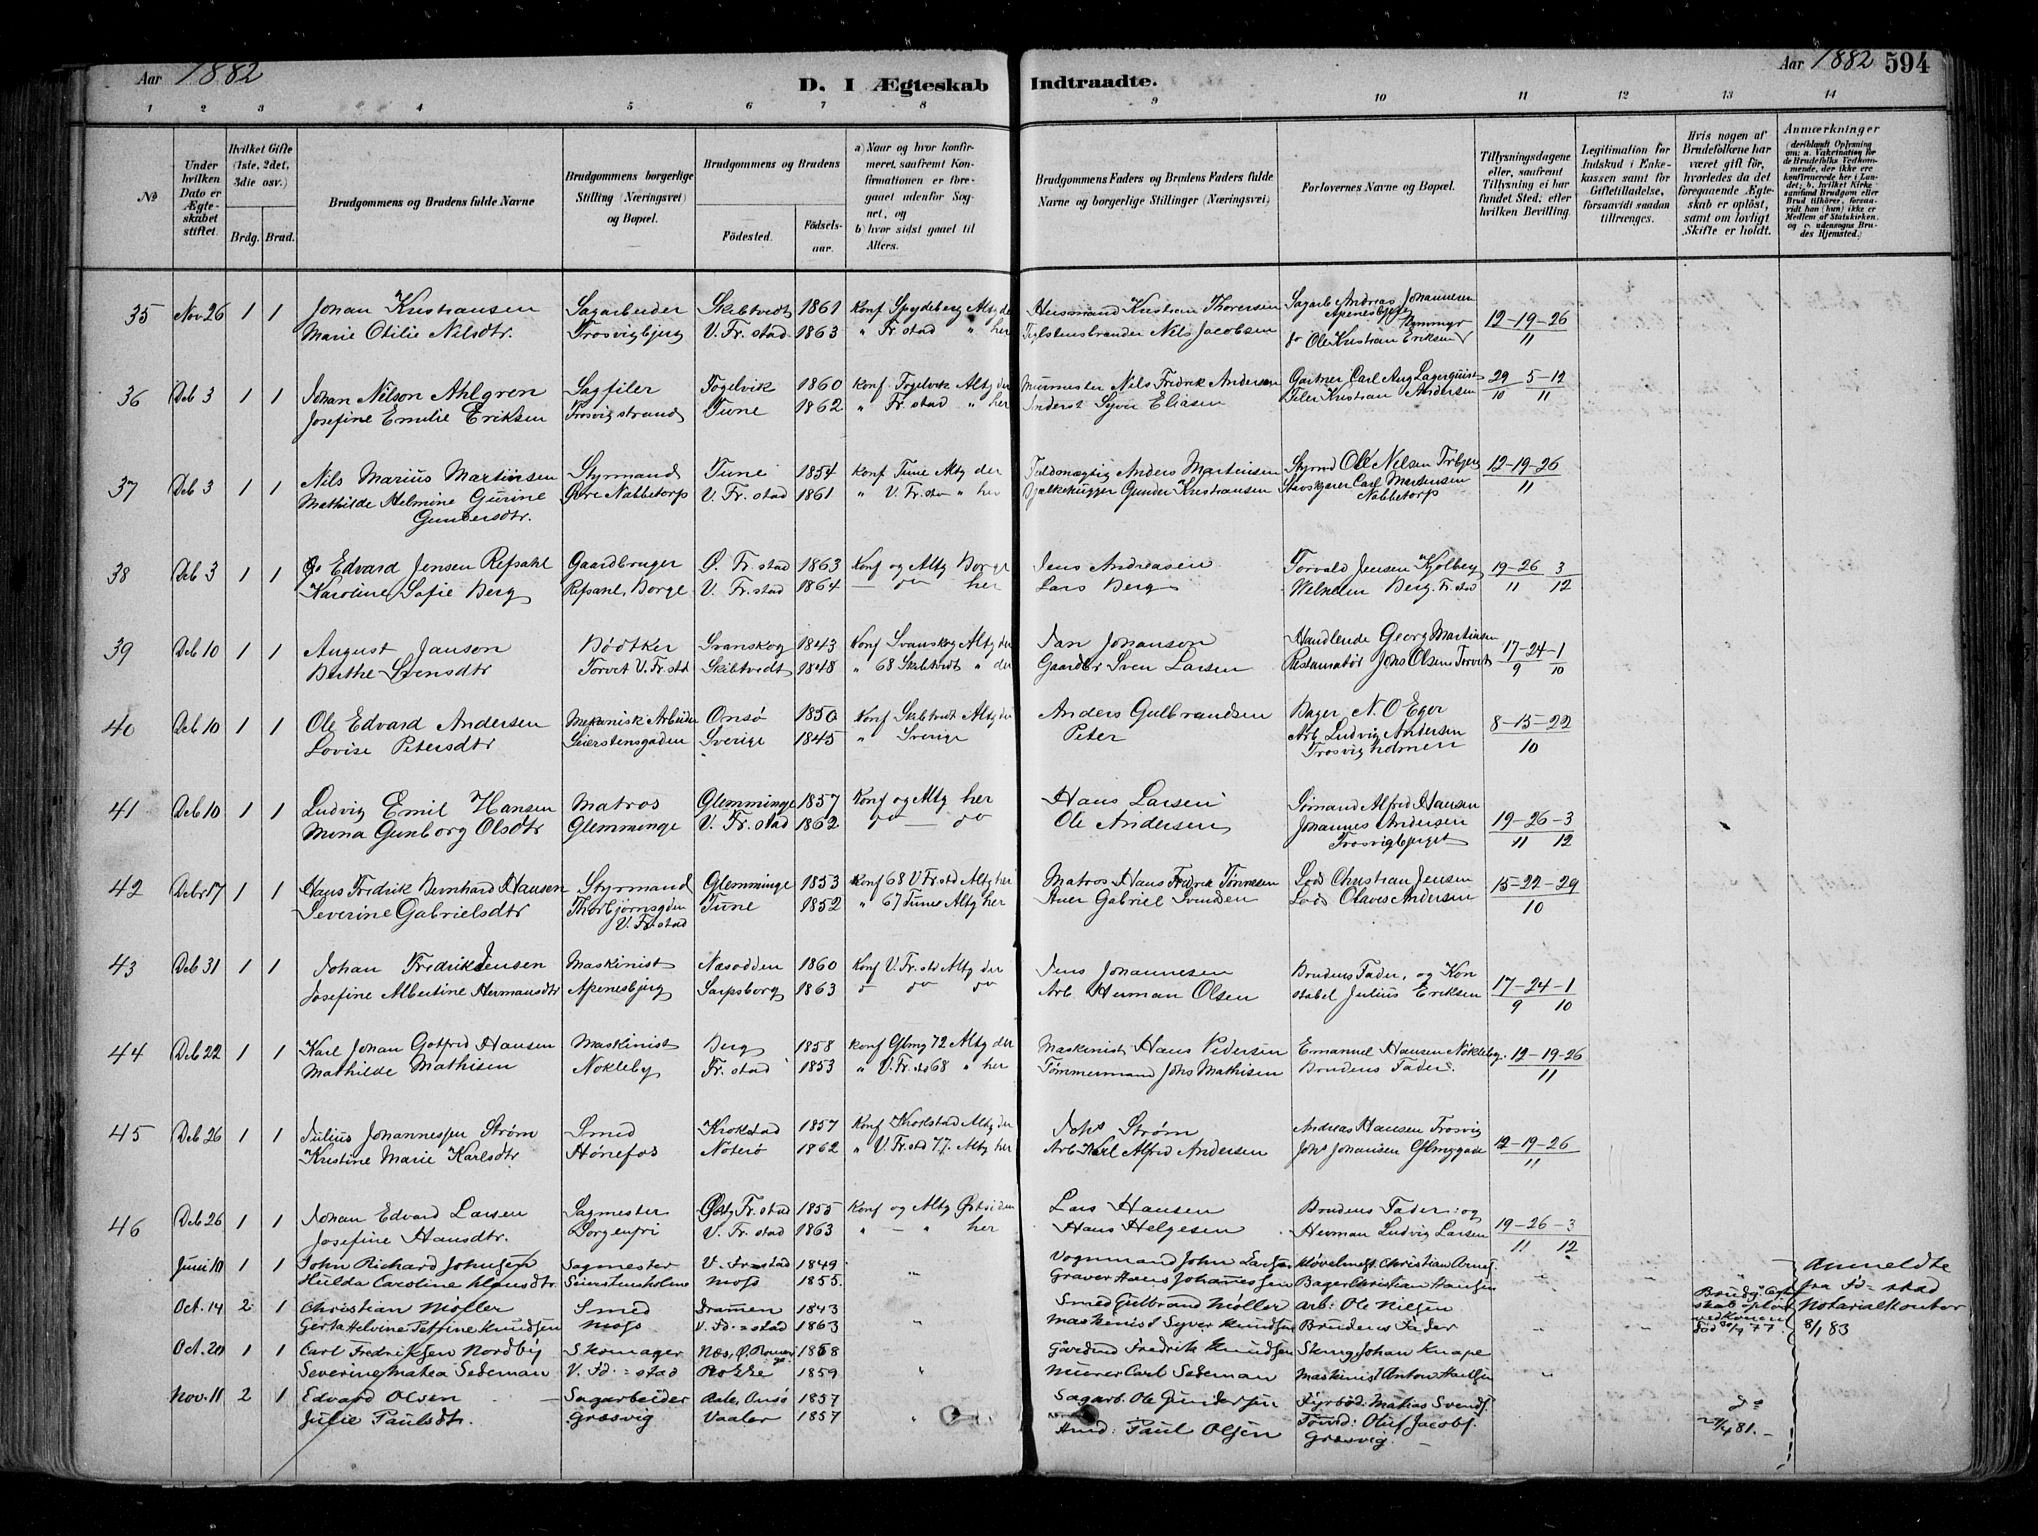 Aar 1882
D. I Ægteskab Indtraadte.
Aar 1882 594
1 2 3 4 5 6 7 8 9 10 11 12 13 14
№
Under hvilken Dato er Ægteskabet stiftet.
Hvilket Gifte (1ste, 2det, 3die osv.)
Brdg. Brud.
Brudgommens og Brudens fulde Navne
Brudgommens borgerlige Stilling (Næringsvei) og Bopæl.
Brudgommens og Brudens
Fødested. Fødselsaar.
a) Naar og hvor konfirmeret, saafremt Konfirmationen er foregaaet udenfor Sognet, og
b) hvor sidst gaaet til Alters.
Brudgommens Faders og Brudens Faders fulde Navne og borgerlige Stillinger (Næringsvei)
Forlovernes Navne og Bopæl.
Tillysningsdagene eller, saafremt Tillysning ei har fundet Sted: efter hvilken Bevilling.
Legitimation for Indskud i Enkekassen samt for Giftetilladelse, forsaavidt saadan tiltrænges.
Hvis nogen af Brudefolkene har været gift før, hvorledes da det foregaaende Ægteskab er opløst, samt om lovligt Skifte er holdt.
Anmærkninger
35 Nov 26 1 1 Johan Kristiansen Sagarbeider Skibtvedt 1861 Konf Spydeberg Altg der Kristian Thorersen Sagarb Andreas Johannesen 12-19-26
Marie Otilie Nilsdtr. Trosvigbjerg V. Fr.stad 1863 " Fr stad " her Teglstensbrænder Nils Jacobsen do Ole Kristian Eriksen 11
36 Deb 3 1 1 Johan Nilson Ahlgren Sagfiler Fogelvik 1860 Konf. Fogelvik Altg der Murmester Nils Fredrik Andersen Gartner Carl Aug Lagerquist 29 5-12
Josefine Emilie Eriksen Trosvigstrand Tune 1862 " Fr.stad " her Syver Eliasen Filer Kristian Andersen 10 11
37 Deb 3 1 1 Nils Marius Martinsen Styrmand Tune 1854 Konf Tune Altg der Fuldmægtig Anders Martinsen Styrmd Ole Nilsen 12-19-26
Mathilde Helmine Gurine Øvre Nabbetorp V. Fr. stad 1861 " V. Fr. sta " her Bjelkehugger Gunder Kristiansen Carl Martensen 11
Gundersdtr. Nabbetorp
38 Deb 3 1 1 Edvard Jensen Refsahl Gaardbruger Ø. Fr. stad 1863 Konf og Altg Borge Jens Andreasen Torvald Jensen Kjølberg 19-26 3
Karoline Sofie Berg Refsahl, Borge V. Fr. stad 1864 — do her Lars Berg Wilhelm Berg Fr. stad 11 12
39 Deb 10 1 1 August Janson Bødtker Svanskog 1843 Konf Svanskog Altg der Jan Johanson Handlende Georg Martinsen 17-24-1
Berthe Svensdtr Torvet V. Fr. std Skibtvedt 1848 " 68 Skibtvedt " der Gaardbr Sven Larsen Johs Olsen Torvet 9 10
40 Deb 10 1 1 Ole Edvard Andersen Mekanisk Arbeider Onsø 1850 Konf Skibtvedt Altg der Anders Gulbrandsen Bager N. O Eger 8-15-22
Lovise Petersdtr Seierstensgaden Sverige 1845 " Sverige Peter Arb. Ludvig Andersen 10
Trosvig holmen
41 Deb 10 1 1 Ludvig Emil Hansen Matros Glemminge 1857 Konf og Altg her Hans Larsen Sømand Alfred Hansen 19-26-3
Mina Gunborg Olsdtr Glemminge V. Fr. stad 1862 do — do Ole Andersen Johannes Andersen 11 12
Trosvigbjerget
42 Debr 17 1 1 Hans Fredrik Bernhard Hansen Styrmand Glemminge 1853 Konf 68 V Fr. std Altg her Matros Hans Fredrik Tønnesen Lods Christian Jensen 15-22-29
Severine Gabrielsdtr Thorbjørnsgden Tune 1852 " 67 Tune Altg her Gabriel Svendsen Lods Olaves Andersen 10
V. Fr. stad
43 Deb 31 1 1 Johan Fredrik Jensen Maskinist Næsodden 1860 Konf V. Fr. std Altg der Jens Johannesen Brudens Fader, og Kon 17-24-1
Josefine Albertine Hermansdtr Apenesbjerg Sarpsborg 1863 do do do Arb. Herman Olsen stabel Julius Eriksen 9 10
44 Deb 22 1 1 Karl Johan Gotfred Hansen Maskinist Berg 1858 Konf Glmg 72 Altg der Maskinist Hans Pedersen Emanuel Hansen Nøkleby. 12-19-26
Mathilde Mathisen Nøkleby Fr. stad 1853 " V. Fr. std 68 " her Tømmermand Johs Mathisen Brudens Fader. 11
45 Deb 26 1 1 Julius Johannessen Strøm Smed Krokstad 1857 Konf Krokstad Altg der Johs Strøm Andreas Hansen Trosvig 12-19-26
Kristine Marie Karlsdtr Hønefos Nøterø 1862 " V. Fr. std 77. Altg her Arb. Karl Alfred Andersen Johs Johansen Glmggade 11
46 Deb 26 1 1 Johan Edvard Larsen Sagmester Østg Fr. stad 1855 Konf og Altg Østsiden Lars Hansen Brudens Fader: og 19-26-3
Josefine Hansdtr. Sorgenfri V. Fr. stad 1863 " — " her Hans Helgesen Herman Ludvig Larsen 11 12
Juni 10 1 1 John Richard Johnsen Sagmester V. Fr=stad 1849 " Vognmand John Larsen Høvelmest. Christian Arnes.
Hulda Caroline Hansdtr. Seierstensholme Moss 1855. Graver Hans Johannessen Bager Christian Hansen
Oct. 14 2 1 Christian Møller Smed Dramen 1843 Smed Gulbrand Møller Arb: Ole Nilsen
Gerta Helvine Petrine Knudsen Moss V. Fd.=stad 1863 " Maskinist Syver Knudsen Brudens Fader
Anmeldte fra Fd=stad Notarialkontor 8/1 83
Oct. 20 1 1 Carl Fredriksen Nordby Skomager Næs, Ø. Romerige 1858 Gåvdmd Fredrik Knudsen Skmg Johan Knape
Severine Mathea Sedeman V. Fd:=stad Rokke 1859 " Murer Carl Sedeman Maskinist Anton Hansen
Nov. 11 2 1 Edvard Olsen Sagarbeider Aale, Onsø 1857 Sagarb. Ole Gundersen Fyrbød. Matias Svends.
Julie Paulsdtr. Græsvig Vaaler 1857 " Hmd: Paul Olsen Oluf Jacobs. Græsvig. do 81.